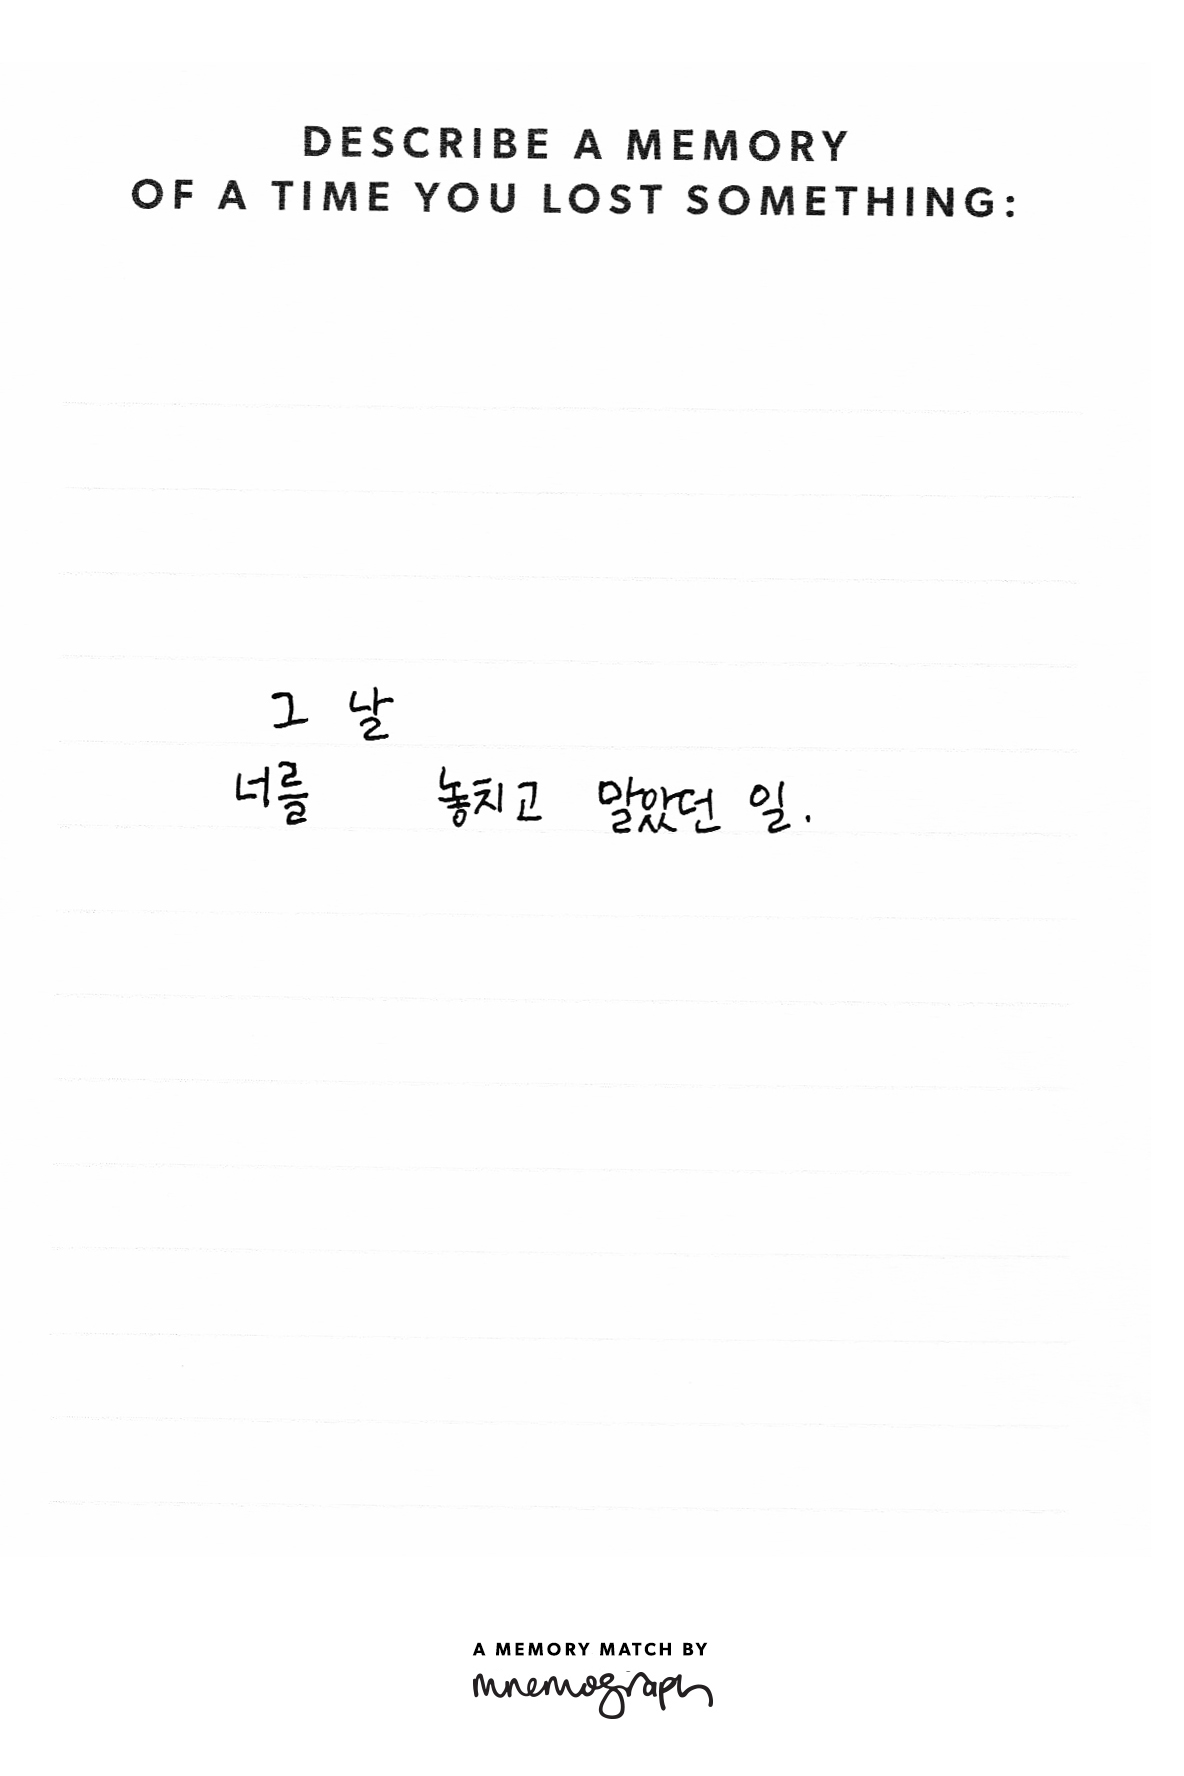 DESCRIBE A MEMORY
OF A TIME YOU LOST SOMETHING:
그 날
너를 놓치고 말았던 일.
A MEMORY MATCH BY
mnemograph